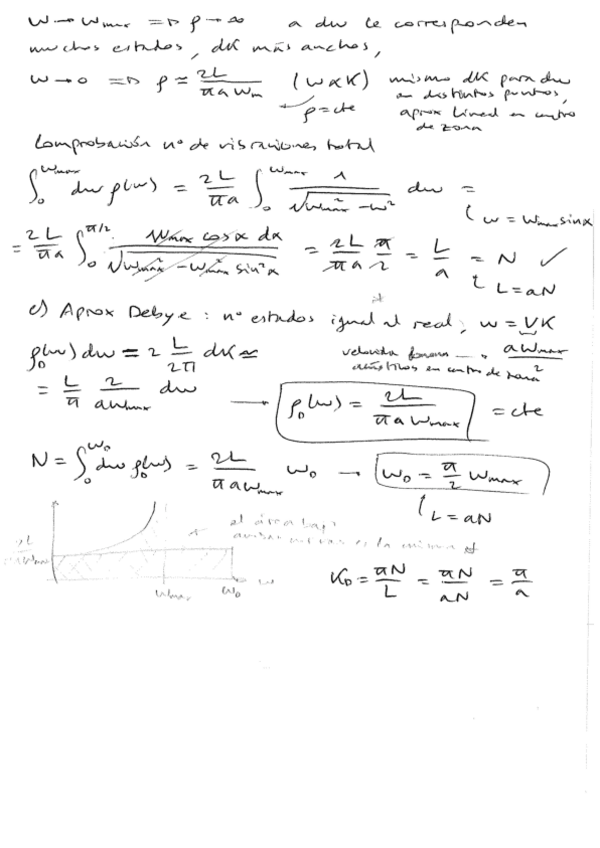 W → Wmax ⇒ ρ → ∞ a dw le corresponden
muchos estados, dK más anchos,
W → 0 ⇒ ρ ≃ 2L/(πa Wm) (W ∝ K) mismo dK para dw
ρ = cte en distintos puntos,
aprox lineal en centro
de zona
Comprobación nº de vibraciones total
∫₀^Wmax dw ρ(w) = 2L/(πa) ∫₀^Wmax 1/√(Wmax² - w²) dw =
w = Wmax sinx
= 2L/(πa) ∫₀^π/2 Wmax cosx dx / √(Wmax² - Wmax² sin²x) = 2L/(πa) π/2 = L/a = N ✓
L = aN
c) Aprox Debye: nº estados igual al real, w = VK
ρ_D(w) dw = 2 L/(2π) dK ≃ velocidad aWmax/2
acústicos en centro de zona
= L/π 2/(aWmax) dw → ρ_D(w) = 2L/(πa Wmax) = cte
N = ∫₀^W_D dw ρ_D(w) = 2L/(πa Wmax) W_D → W_D = π/2 Wmax
L = aN
el área bajo
ambas es la misma
Wmax W_D w
K_D = πN/L = πN/(aN) = π/a